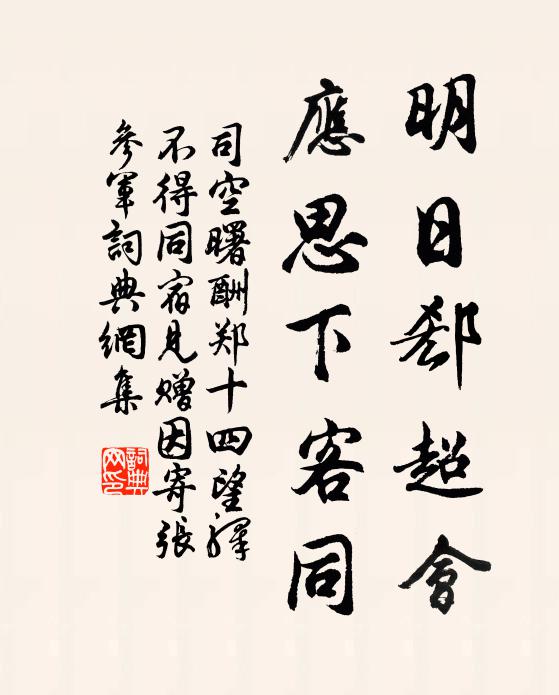 明日郄超會
應思下客同
司空曙酬郑十四望驛
不得同宿見赠因寄張
參軍詞典網集
詞典网印